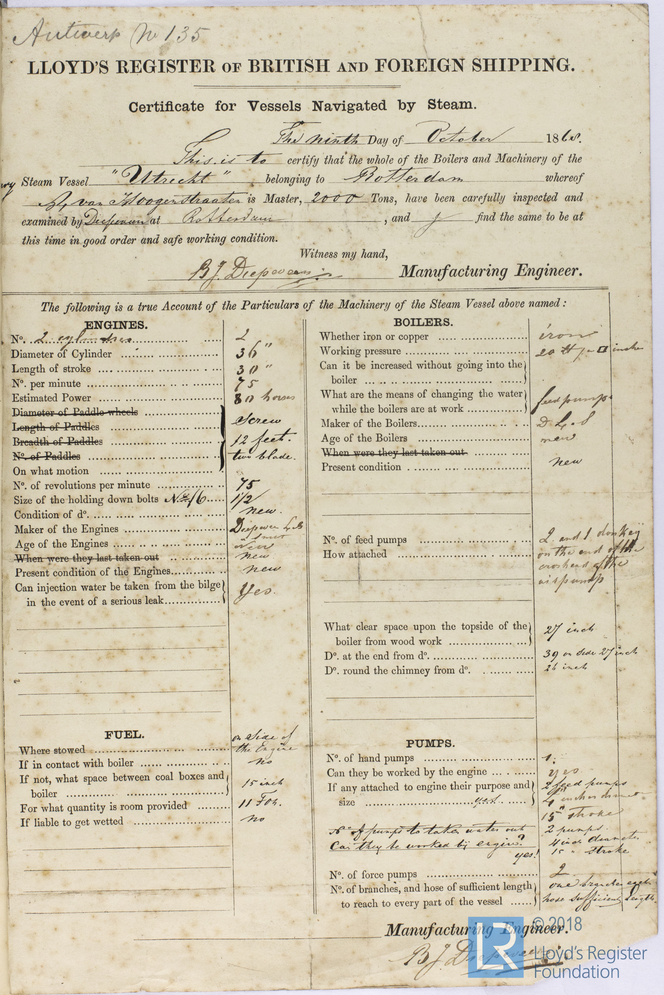 Antwerp No 135
LLOYD'S REGISTER OF BRITISH AND FOREIGN SHIPPING.
Certificate for Vessels Navigated by Steam.
The ninth Day of October 1868.
This is to certify that the whole of the Boilers and Machinery of the
Steam Vessel "Utrecht" belonging to Rotterdam whereof
is Master, 2000 Tons, have been carefully inspected and
examined by at Rotterdam, and I find the same to be at
this time in good order and safe working condition.
Witness my hand,
B.J. Manufacturing Engineer.
The following is a true Account of the Particulars of the Machinery of the Steam Vessel above named:
ENGINES.
No. 2 cylinders 2
Diameter of Cylinder 36"
Length of stroke 30"
No. per minute 75
Estimated Power 80 horses
Diameter of Paddle wheels
Length of Paddles Screw
Breadth of Paddles 12 feet.
No. of Paddles two blade.
On what motion
No. of revolutions per minute 75
Size of the holding down bolts No 16 1 1/2
Condition of do. new.
Maker of the Engines
Age of the Engines new
When were they last taken out new
Present condition of the Engines new
Can injection water be taken from the bilge
in the event of a serious leak Yes.
FUEL.
Where stowed on side of the Engine
If in contact with boiler no
If not, what space between coal boxes and
boiler 15 inch
For what quantity is room provided 11 Ton.
If liable to get wetted no
BOILERS.
Whether iron or copper iron
Working pressure 20 lb pr □ inch
Can it be increased without going into the
boiler
What are the means of changing the water
while the boilers are at work feed pumps
Maker of the Boilers
Age of the Boilers new
When were they last taken out
Present condition new
No. of feed pumps 2 and 1 donkey
How attached on the end of the
crosshead of the
airpump
What clear space upon the topside of the
boiler from wood work 27 inch
Do. at the end from do. 39 on side 27 inch
Do. round the chimney from do. 26 inch
PUMPS.
No. of hand pumps 1.
Can they be worked by the engine yes
If any attached to engine their purpose and
size yes. 2 feed pumps
4 inches
15" stroke
No of pumps to take water out 2 pumps
Can they be worked by engine? yes! 4 inch diameter
15 " stroke
No. of force pumps 2
No. of branches, and hose of sufficient length
to reach to every part of the vessel one branche
hose sufficient length
Manufacturing Engineer.
B J
LR
© 2018
Lloyd's Register
Foundation